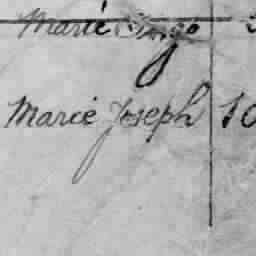 Marie
Marie Joseph 10